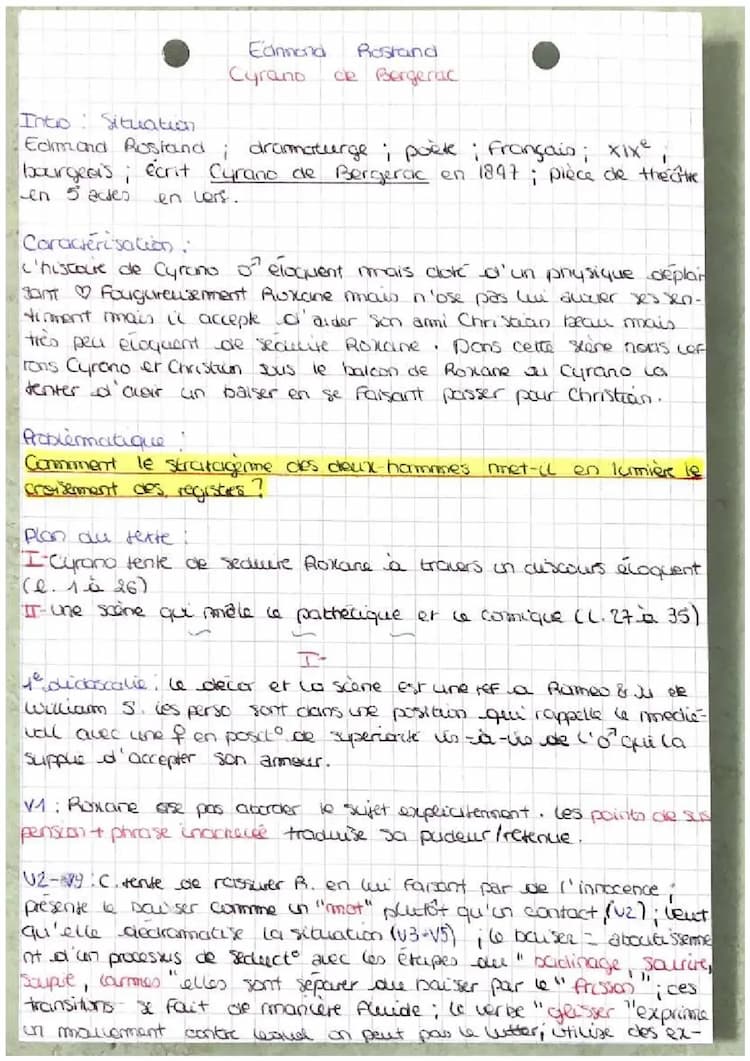 Edmond Rostand
Cyrano de Bergerac
Intro : Situation
Edmond Rostand ; dramaturge ; poète ; Français ; XIXe ;
bourgeois ; écrit Cyrano de Bergerac en 1897 ; pièce de théâtre
en 5 actes en vers.
Caractérisation :
L'histoire de Cyrano ♂ éloquent mais doté d'un physique déplai-
sant ♡ Fougureusement Roxane mais n'ose pas lui avouer ses sen-
timent mais il accepte d'aider son ami Christian beau mais
très peu éloquent de séduire Roxane. Dans cette scène nous
rons Cyrano et Christian sous le balcon de Roxane où Cyrano va
tenter d'avoir un baiser en se faisant passer pour Christian.
Problématique :
Comment le stratagème des deux hommes met-il en lumière le
croisement des registres ?
Plan du texte :
I-Cyrano tente de séduire Roxane à travers un discours éloquent
(l. 1 à 26)
II-une scène qui mêle le pathétique et le comique (l. 27 à 35)
I-
1e didascalie : le décor et la scène est une ref a Roméo & Ju de
William S. les perso sont dans une position qui rappelle le médié-
val avec une ♀ en posit° de supériorité vis-à-vis de l'♂ qui la
supplie d'accepter son amour.
V1 : Roxane ose pas aborder le sujet explicitement. Les points de sus
pension + phrase inachevée traduise sa pudeur/retenue.
V2-V9 : C. tente de rassurer R. en lui faisant par de l'innocence ;
présente le baiser comme un "mot" plutôt qu'un contact (V2) ; veut
qu'elle dédramatise la situation (V3-V5) ; le baiser = aboutisseme
nt d'un processus de séduct° avec les étapes du "badinage, sourire,
soupir, larmes" elles sont séparer du baiser par le "frisson" ; ces
transitions se fait de manière fluide ; le verbe "glisser" exprime
un mouvement contre lequel on peut pas lutter ; utilise des ex-